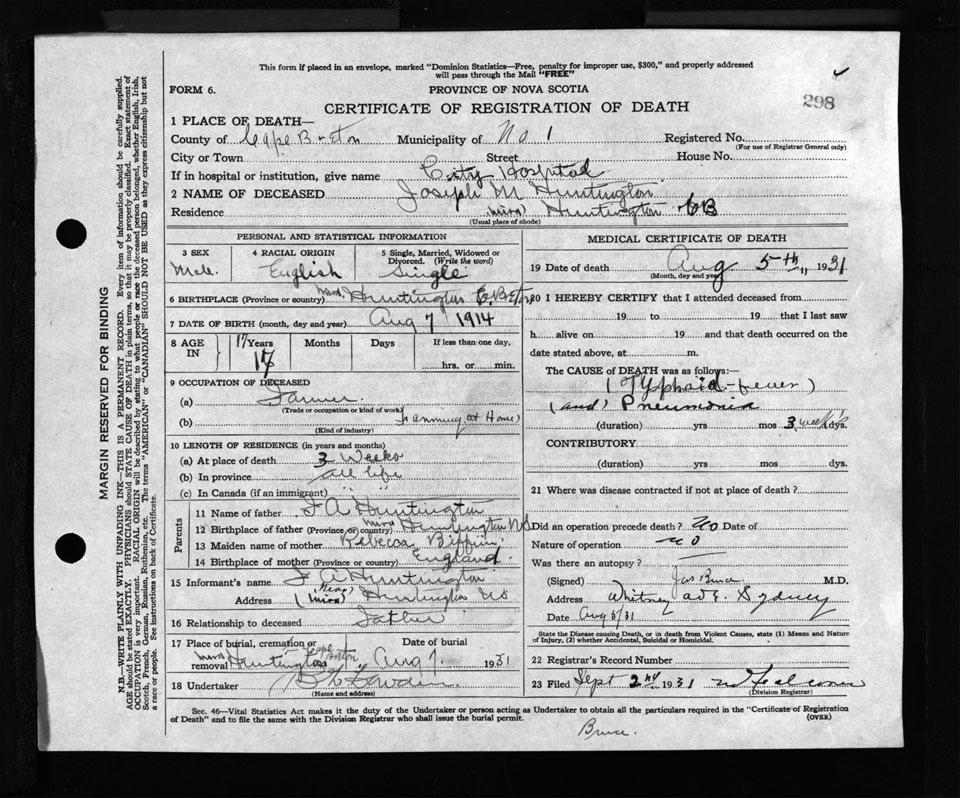 This form if placed in an envelope, marked "Dominion Statistics—Free, penalty for improper use, $300," and properly addressed
will pass through the Mail "FREE"
FORM 6.
PROVINCE OF NOVA SCOTIA
298
CERTIFICATE OF REGISTRATION OF DEATH
1 PLACE OF DEATH—
County of Cape Breton Municipality of No. 1 Registered No.
(For use of Registrar General only)
City or Town Street House No.
If in hospital or institution, give name City Hospital
2 NAME OF DECEASED Joseph M Huntington
Residence Mira Huntington CB
(Usual place of abode)
PERSONAL AND STATISTICAL INFORMATION
3 SEX Male.
4 RACIAL ORIGIN English
5 Single, Married, Widowed or Divorced. (Write the word) Single
6 BIRTHPLACE (Province or country) Huntington C. Breton
7 DATE OF BIRTH (month, day and year) Aug 7 1914
8 AGE IN 17 Years Months Days If less than one day,
17 hrs. or min.
9 OCCUPATION OF DECEASED
(a) Farmer
(Trade or occupation or kind of work)
(b) Farming at Home
(Kind of industry)
10 LENGTH OF RESIDENCE (in years and months)
(a) At place of death 3 Weeks
(b) In province all life
(c) In Canada (if an immigrant) " "
Parents
11 Name of father F A Huntington
12 Birthplace of father (Province or country) Mira Huntington NS
13 Maiden name of mother Rebecca
14 Birthplace of mother (Province or country) England.
15 Informant's name F A Huntington
Address (Mira) Huntington NS
16 Relationship to deceased Father
17 Place of burial, cremation or removal Mira Huntington Cape Breton Date of burial Aug 7. 1931
18 Undertaker
(Name and address)
MEDICAL CERTIFICATE OF DEATH
19 Date of death Aug 5th 1931
(Month, day and year)
20 I HEREBY CERTIFY that I attended deceased from
19 to 19 that I last saw
h alive on 19 and that death occurred on the
date stated above, at m.
The CAUSE of DEATH was as follows:
(Typhaid-fever)
(and) Pneumonia
(duration) yrs mos 3 weeks dys.
CONTRIBUTORY
(duration) yrs mos dys.
21 Where was disease contracted if not at place of death?
Did an operation precede death? No Date of
Nature of operation no
Was there an autopsy?
(Signed) Jas Bruce M.D.
Address Whitney ave. Sydney
Date Aug 5/31
State the Disease causing Death, or in death from Violent Causes, state (1) Means and Nature
of Injury, (2) whether Accidental, Suicidal or Homicidal.
22 Registrar's Record Number
23 Filed Sept 2nd 1931
(Division Registrar)
Sec. 46—Vital Statistics Act makes it the duty of the Undertaker or person acting as Undertaker to obtain all the particulars required in the "Certificate of Registration
of Death" and to file the same with the Division Registrar who shall issue the burial permit.
(OVER)
Bruce.
MARGIN RESERVED FOR BINDING
N.B.—WRITE PLAINLY WITH UNFADING INK—THIS IS A PERMANENT RECORD. Every item of information should be carefully supplied.
AGE should be stated EXACTLY. PHYSICIANS should STATE CAUSE OF DEATH in plain terms, so that it may be properly classified. Exact statement of
OCCUPATION is very important. RACIAL ORIGIN will be described by stating to what people or race the deceased person belonged, whether English, Irish,
Scotch, French, German, Russian, Ruthenian, etc. The terms "AMERICAN" or "CANADIAN" SHOULD NOT BE USED as they express citizenship but not
a race or people. See instructions on back of Certificate.